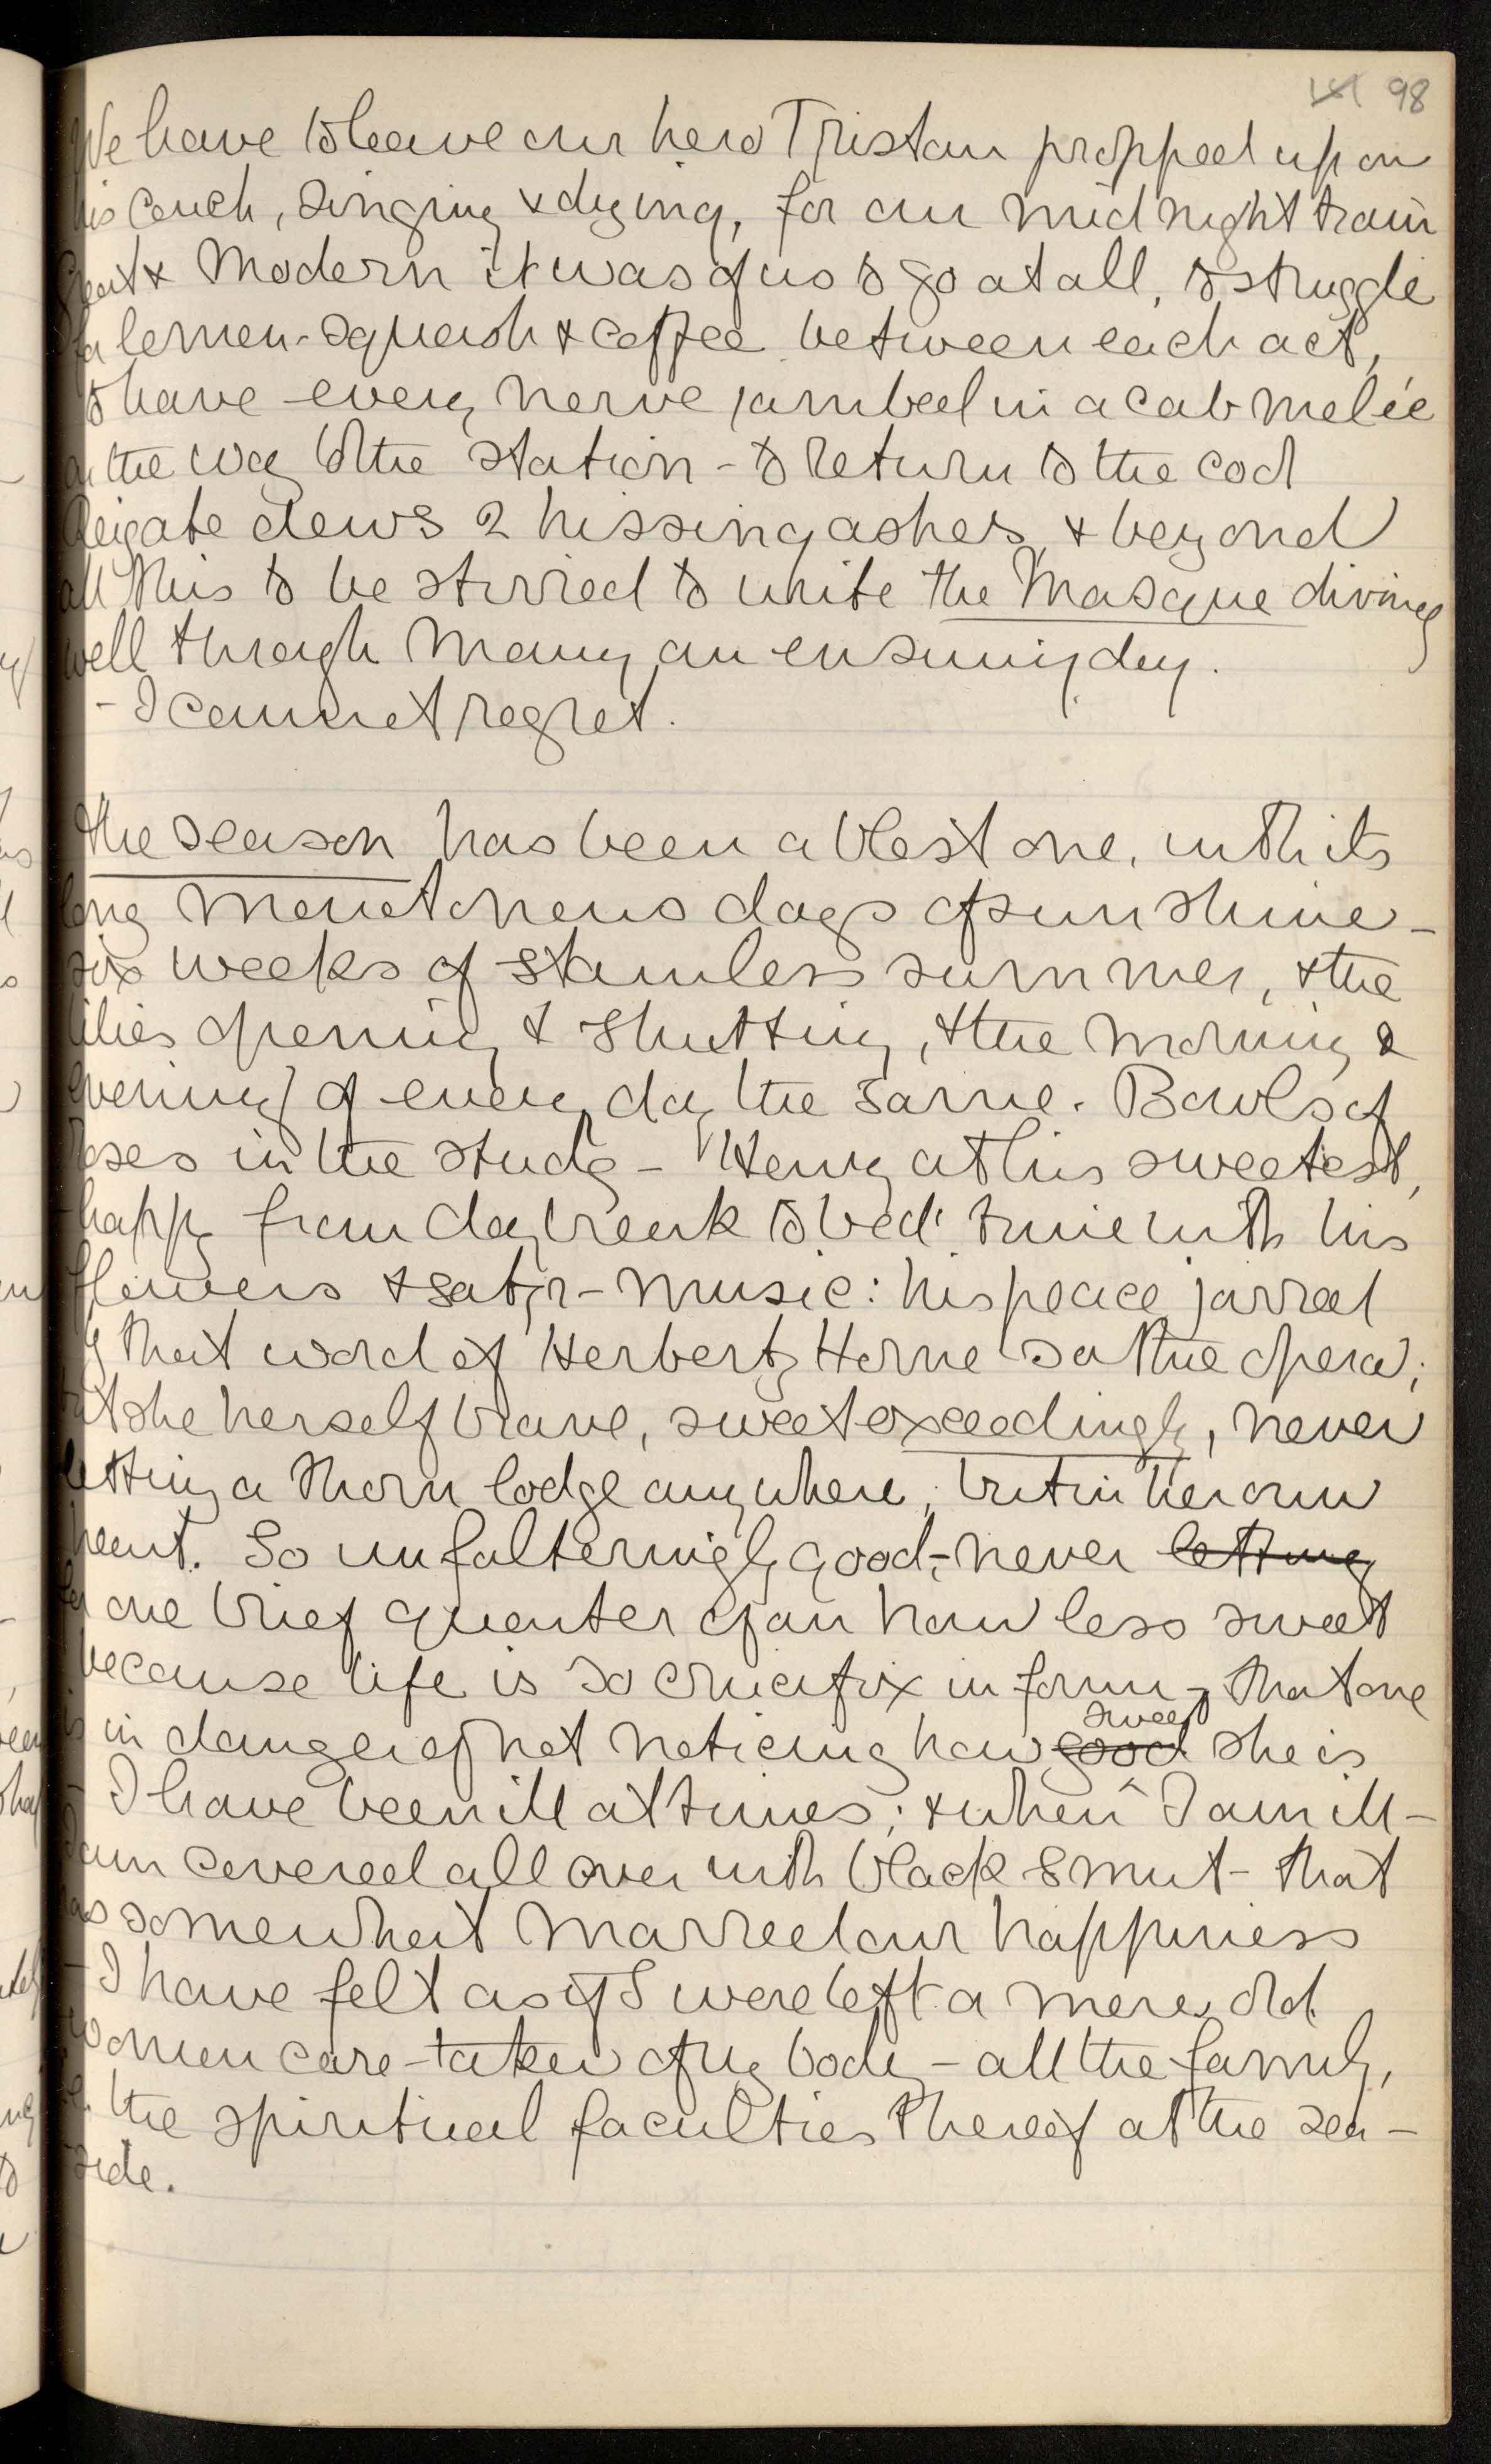 98
We have to leave our hero Tristan propped up on
his couch, singing & dying, for our midnight train
Great & Modern it was of us to go at all, to struggle
for lemon-squash & coffee between each act,
to have every nerve jambed in a cab melée
on the way to the station - to return to the cool
Reigate dews 2 hissing ashes & beyond
all this to be stirred to write the Masque diviney
well through many an ensuing day.
- I cannot regret.
The season has been a blest one, with its
long monotonous days of sunshine -
six weeks of stainless summer, & the
lilies opening & shutting, & the morning &
evening of every day the same. Bowls of
roses in the study - Henry at his sweetest,
happy from daybreak to bed time with his
flowers & satyr-music: his peace jarred
by that word of Herbert Horne's at the opera;
but she herself brave, sweet exceedingly, never
letting a thorn lodge anywhere, but in her own
heart. So unfalteringly good, - never letting
for one brief quarter of an hour less sweet
because life is so crucifix in form, that one
is in danger of not noticing how good sweet she is
I have been ill at times; & when I am ill -
I am covered all over with black smut - that
has somewhat marred our happiness
I have felt as if I were left a mere old
woman care-taker of my body - all the family,
i.e. the spiritual faculties thereof at the sea-
side.